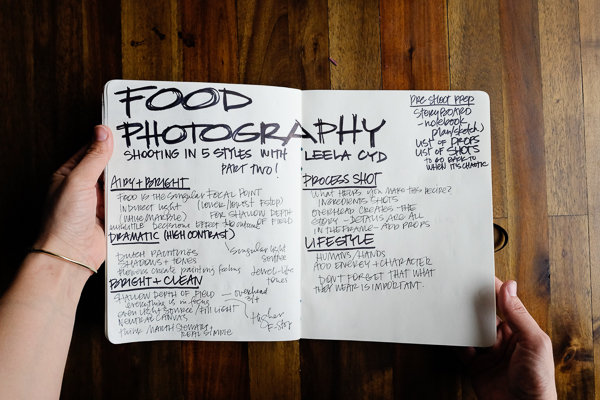 FOOD
PHOTOGRAPHY
SHOOTING IN 5 STYLES WITH LEELA CYD
PART TWO!
AIRY + BRIGHT
FOOD IS THE SINGULAR FOCAL POINT
INDIRECT LIGHT
(WHITE MARBLE)
(LOWER/LOWEST F STOP)
FOR SHALLOW DEPTH
OF FIELD
DECISIONS EFFECT THE
DRAMATIC (HIGH CONTRAST)
Singular light
source
DUTCH PAINTINGS
SHADOWS + TONES
FLOWERS CREATE painting feeling
Jewel-like
tones
BRIGHT + CLEAN
SHALLOW DEPTH OF FIELD
overhead
everything is in focus
even light source / fill light
NEUTRAL CANVAS
Higher
F-stop
think MARTHA STEWART +
REAL SIMPLE
PROCESS SHOT
WHAT HELPS YOU MAKE THIS RECIPE?
INGREDIENTS SHOTS
OVERHEAD CREATES THE
STORY - DETAILS ARE ALL
IN THE FRAME - ADD PROPS
LIFESTYLE
HUMANS/HANDS
ADD ENERGY + CHARACTER
DON'T FORGET THAT WHAT
THEY WEAR IS IMPORTANT.
PRE SHOOT PREP
STORYBOARD
- notebook
plan/sketch
LIST OF PROPS
LIST OF SHOTS
TO GO BACK TO
WHEN IT'S CHAOTIC